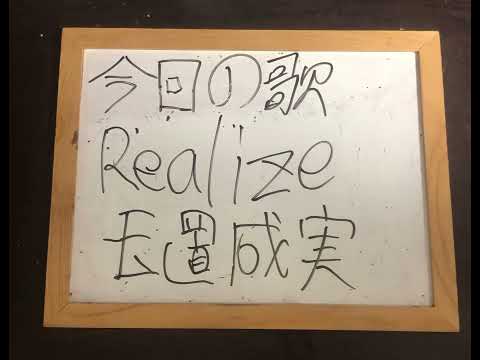 今回の歌
Realize
玉置成実